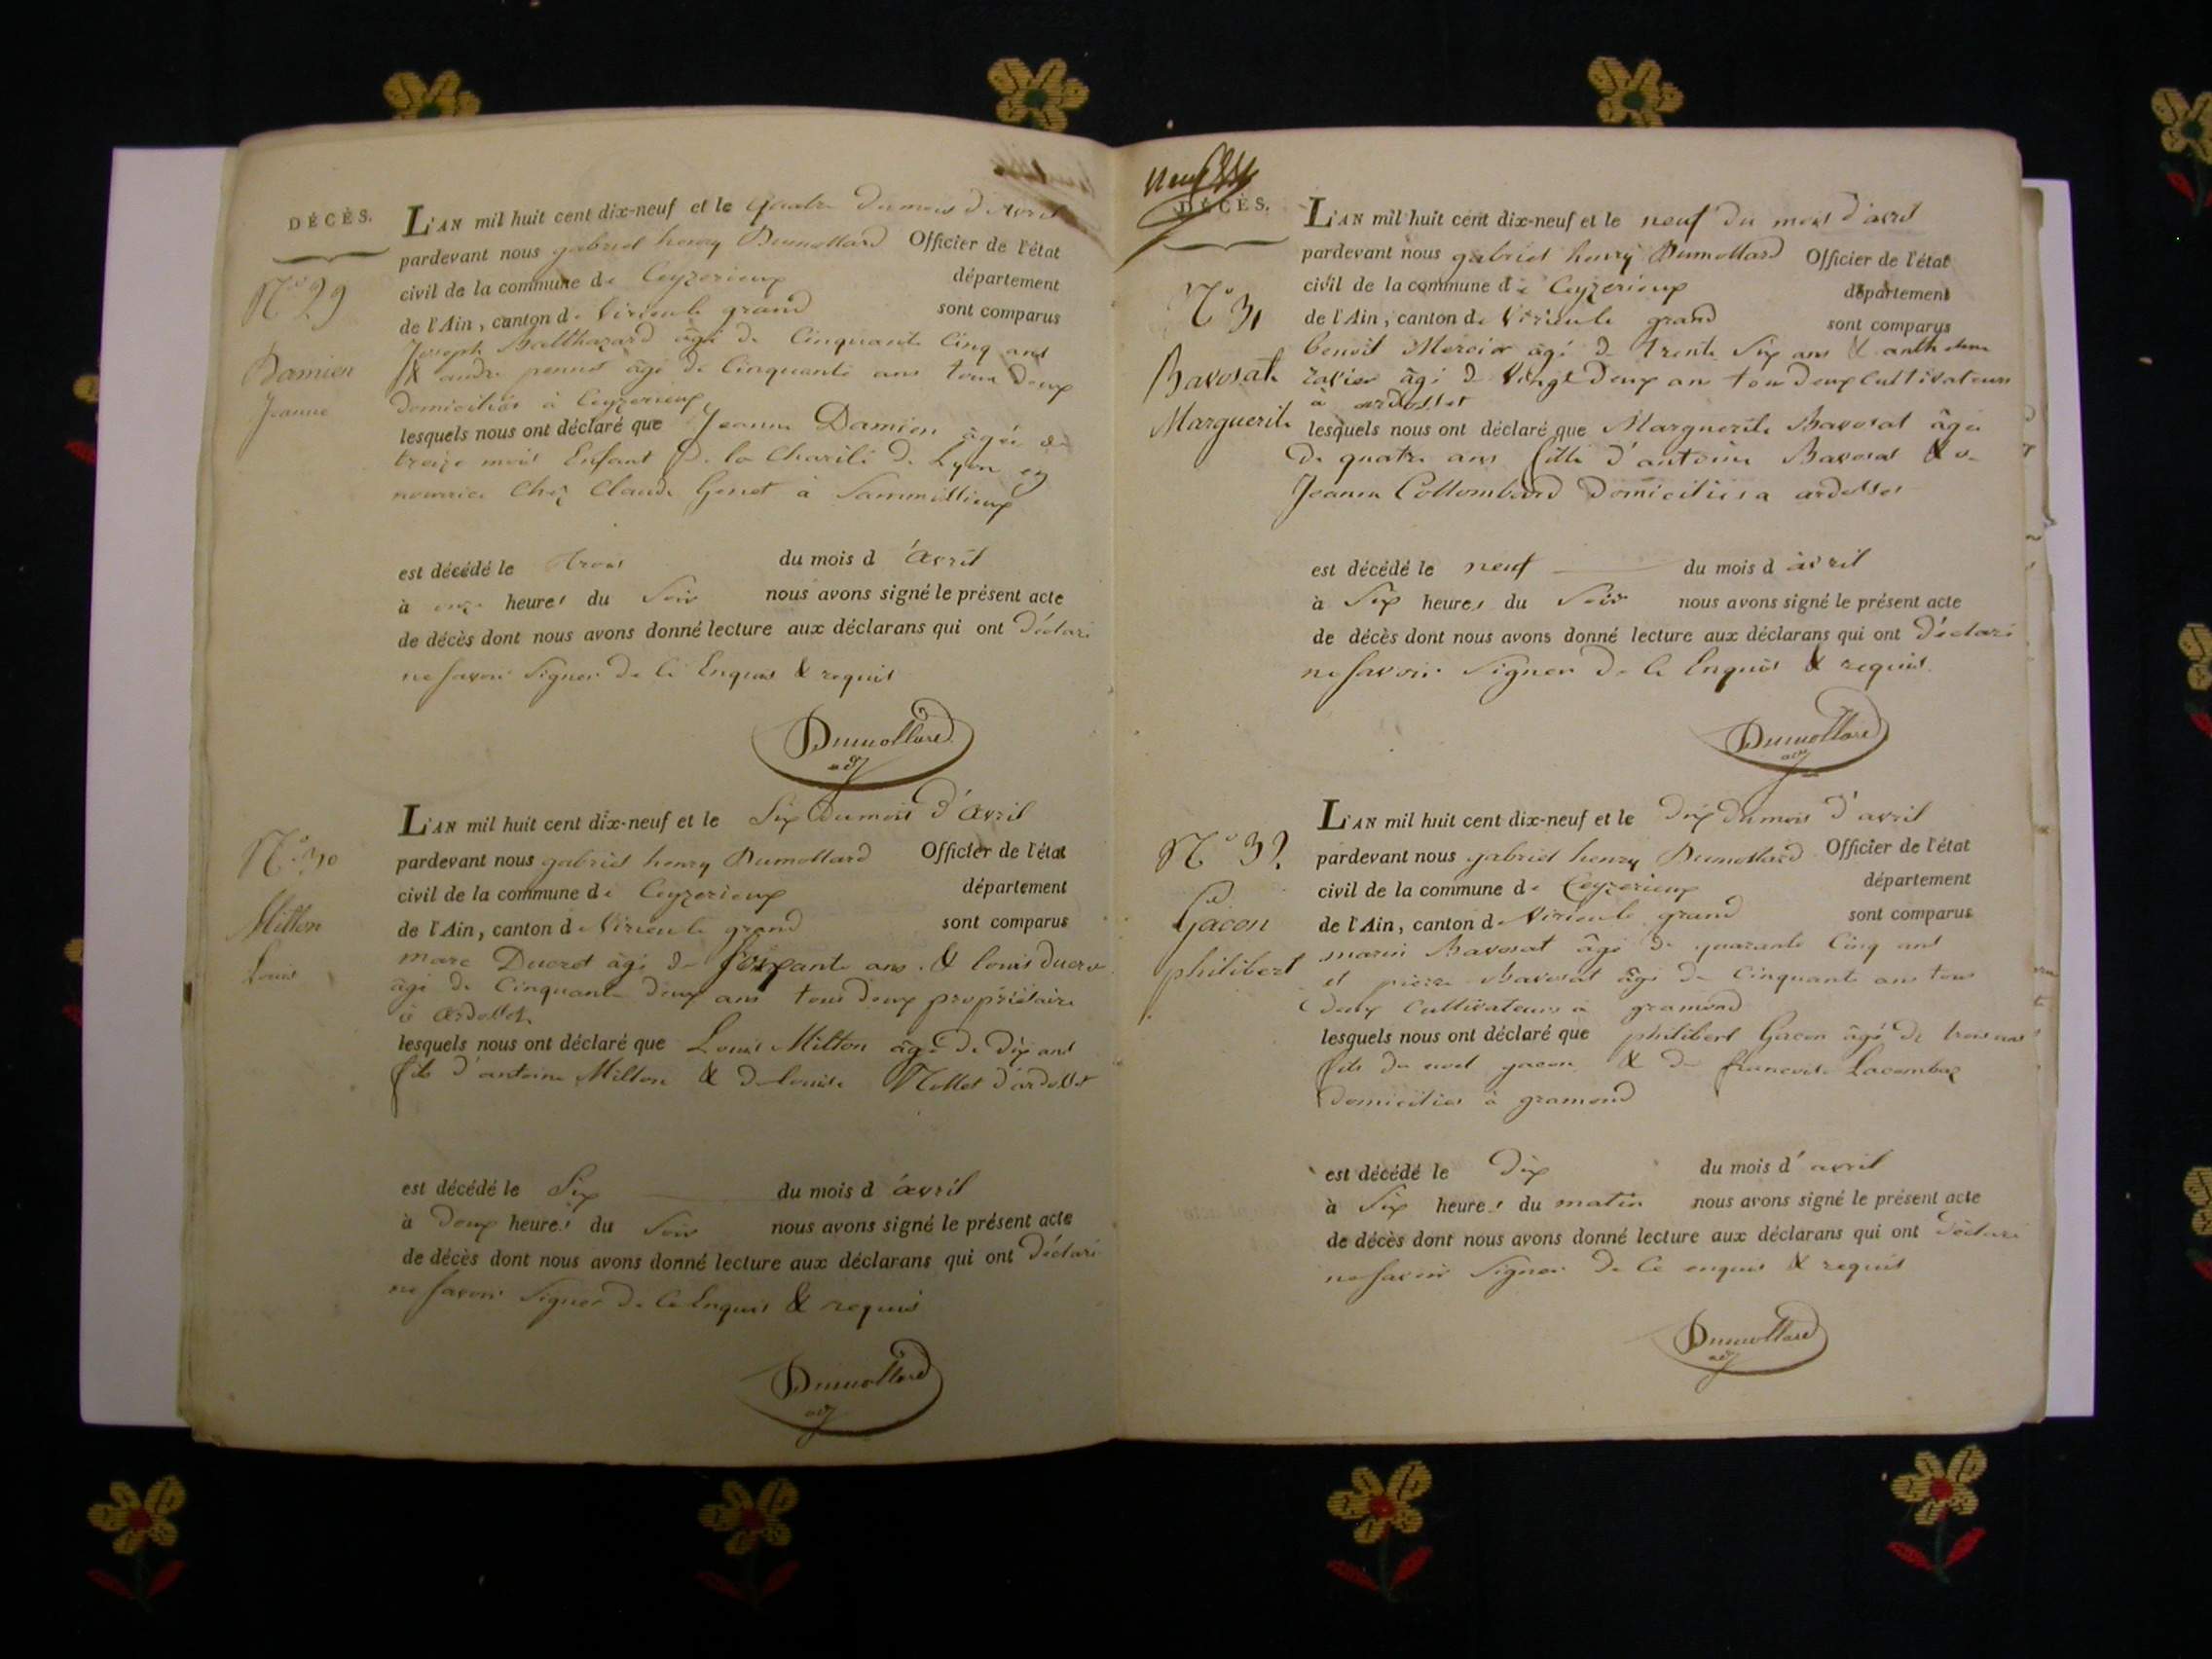 DÉCÈS.
L'AN mil huit cent dix-neuf et le quatre du mois d'avril
pardevant nous gabriel henry Dumollard Officier de l'état
civil de la commune de Ceyzerieux département
de l'Ain, canton de Virieu le grand sont comparus
N.º 29
Damien
Jeanne
Joseph Balthazard âgé de Cinquante Cinq ans
& andré pennet âgé de Cinquante ans tous deux
domiciliés à Ceyzerieux
lesquels nous ont déclaré que Jeanne Damien âgée de
treize mois Enfant de la Charité de Lyon en
nourrice Chez Claude Genet à Sammillieux
est décédé le trois du mois d'avril
à onze heures du Soir nous avons signé le présent acte
de décès dont nous avons donné lecture aux déclarans qui ont déclaré
ne savoir Signer de Ce Enquis & requis
Dumollard
adj
L'AN mil huit cent dix-neuf et le Six du mois d'avril
pardevant nous gabriel henry Dumollard Officier de l'état
civil de la commune de Ceyzerieux département
de l'Ain, canton de Virieu le grand sont comparus
N.º 30
Milton
Louis
marc Ducret âgé de Soixante ans & louis ducre
âgé de Cinquante deux ans tous deux propriétaire
à Ardosset
lesquels nous ont déclaré que Louis Milton âgé de dix ans
fils d'antoine Milton & de louise Mollet d'ardosset
est décédé le Six du mois d'avril
à deux heures du Soir nous avons signé le présent acte
de décès dont nous avons donné lecture aux déclarans qui ont déclaré
ne savoir Signer de Ce Enquis & requis
Dumollard
adj
DÉCÈS.
L'AN mil huit cent dix-neuf et le neuf du mois d'avril
pardevant nous gabriel henry Dumollard Officier de l'état
civil de la commune de Ceyzerieux département
de l'Ain, canton de Virieu le grand sont comparus
N.º 31
Bavosat
Marguerite
benoit Mercier âgé de trente Six ans & anthelme
âgé de Vingt deux ans tous deux Cultivateurs
à ardosset
lesquels nous ont déclaré que Marguerite Bavosat âgée
de quatre ans fille d'antoine Bavosat & de
Jeanne Collombard domiciliés a ardosset
est décédé le neuf du mois d'avril
à Six heures du Soir nous avons signé le présent acte
de décès dont nous avons donné lecture aux déclarans qui ont déclaré
ne savoir Signer de Ce Enquis & requis.
Dumollard
adj
L'AN mil huit cent dix-neuf et le dix du mois d'avril
pardevant nous gabriel henry Dumollard Officier de l'état
civil de la commune de Ceyzerieux département
de l'Ain, canton de Virieu le grand sont comparus
N.º 32
Gacon
philibert
marin Bavosat âgé de quarante Cinq ans
et pierre Bavosat âgé de Cinquante ans tous
deux Cultivateurs à gramond
lesquels nous ont déclaré que philibert Gacon âgé de trois ans
fils de noel gacon & de francoise Lacombaz
domiciliés à gramond
est décédé le dix du mois d'avril
à Six heures du matin nous avons signé le présent acte
de décès dont nous avons donné lecture aux déclarans qui ont déclaré
ne savoir Signer de Ce enquis & requis
Dumollard
adj